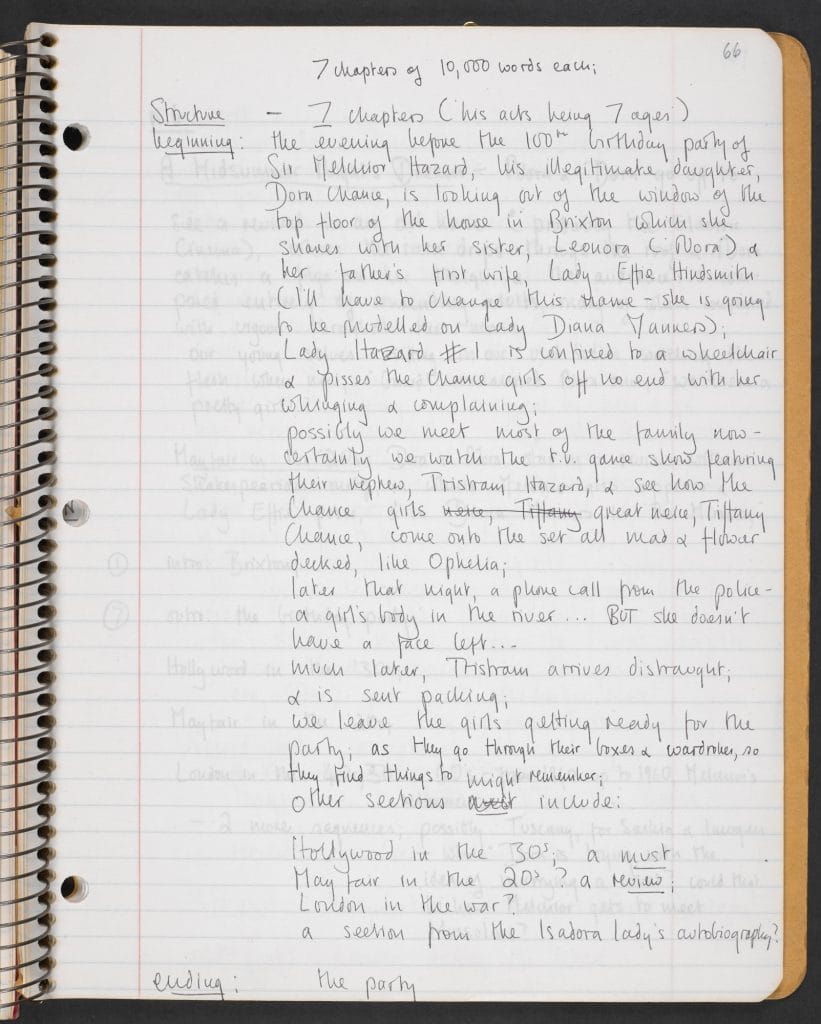 66
7 chapters of 10,000 words each;
Structure – 7 chapters ('his acts being 7 ages')
beginning: the evening before the 100th birthday party of
Sir Melchior Hazard, his illegitimate daughter,
Dora Chance, is looking out of the window of the
top floor of the house in Brixton which she
shares with her sister, Leonora ('Nora') &
her father's first wife, Lady Effie Hindsmith
(I'll have to change this name – she is going
to be modelled on Lady Diana Manners);
Lady Hazard #1 is confined to a wheelchair
& pisses the Chance girls off no end with her
whinging & complaining;
possibly we meet most of the family now –
certainly we watch the t.v. game show featuring
their nephew, Tristram Hazard, & see how the
Chance girls neice, Tiffany great neice, Tiffany
Chance, come onto the set all mad & flower
decked, like Ophelia;
later that night, a phone call from the police –
a girl's body in the river... BUT she doesn't
have a face left...
much later, Tristram arrives distraught;
& is sent packing;
we leave the girls getting ready for the
party; as they go through their boxes & wardrobes, so
they find things to might remember;
other sections include:
Hollywood in the 30s; a must
Mayfair in the 20s? a review;
London in the war?
a section from the Isadora lady's autobiography?
ending: the party